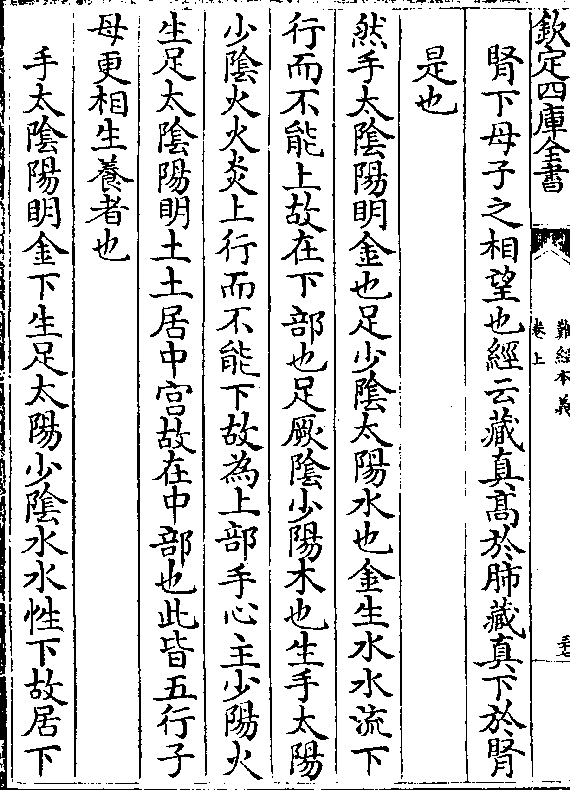 欽定四庫全書
難經本義
卷上
腎下母子之相望也經云藏真髙於肺藏真下於腎
是也
然手太陰陽明金也足少陰太陽水也金生水水流下
行而不能上故在下部也足厥陰少陽木也生手太陽
少陰火火炎上行而不能下故為上部手心主少陽火
生足太陰陽明土土居中宫故在中部也此皆五行子
母更相生養者也
手太陰陽明金下生足太陽少陰水水性下故居下